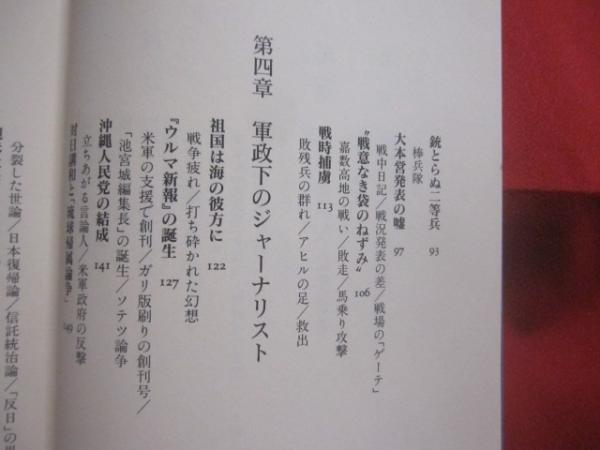 銃とらぬ二等兵 93
棒兵隊
大本営発表の嘘 97
戦中日記/戦況発表の差/戦場の「ゲーテ」
〝戦意なき袋のねずみ〟 106
嘉数高地の戦い/敗走/馬乗り攻撃
戦時捕虜 113
敗残兵の群れ/アヒルの足/救出
第四章 軍政下のジャーナリスト
祖国は海の彼方に 122
戦争疲れ/打ち砕かれた幻想
『ウルマ新報』の誕生 127
米軍の支援で創刊/ガリ版刷りの創刊号/
「池宮城編集長」の誕生/ソテツ論争
沖縄人民党の結成 141
立ちあがる言論人/米軍政府の反撃
対日講和と「琉球帰属論争」 149
分裂した世論/日本復帰論/信託統治論/「反日」の